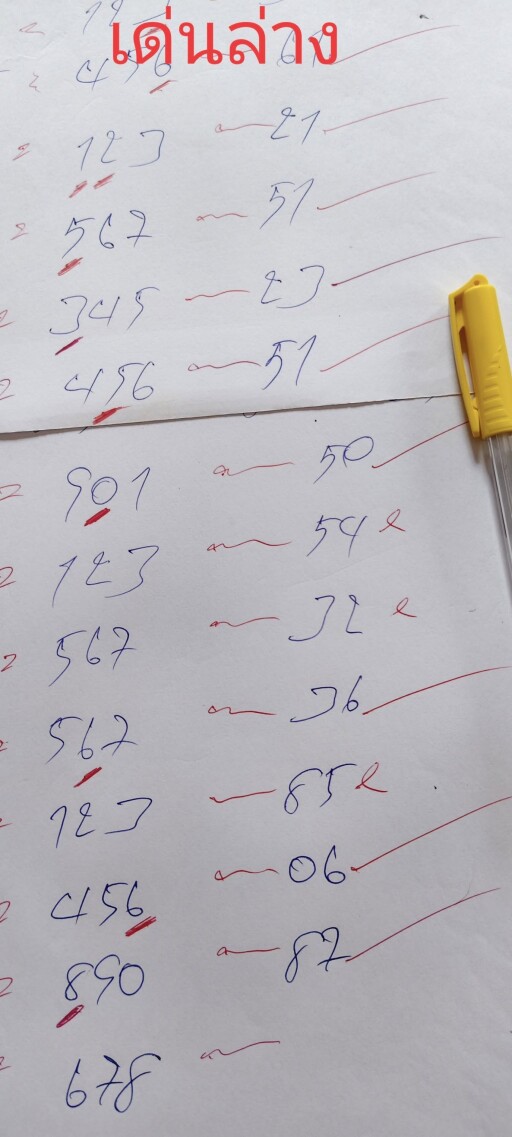 เด่นล่าง
456 61
123 21
567 51
345 23
456 51
901 50
123 54 e
567 32 e
567 36
123 85 e
456 06
890 87
678